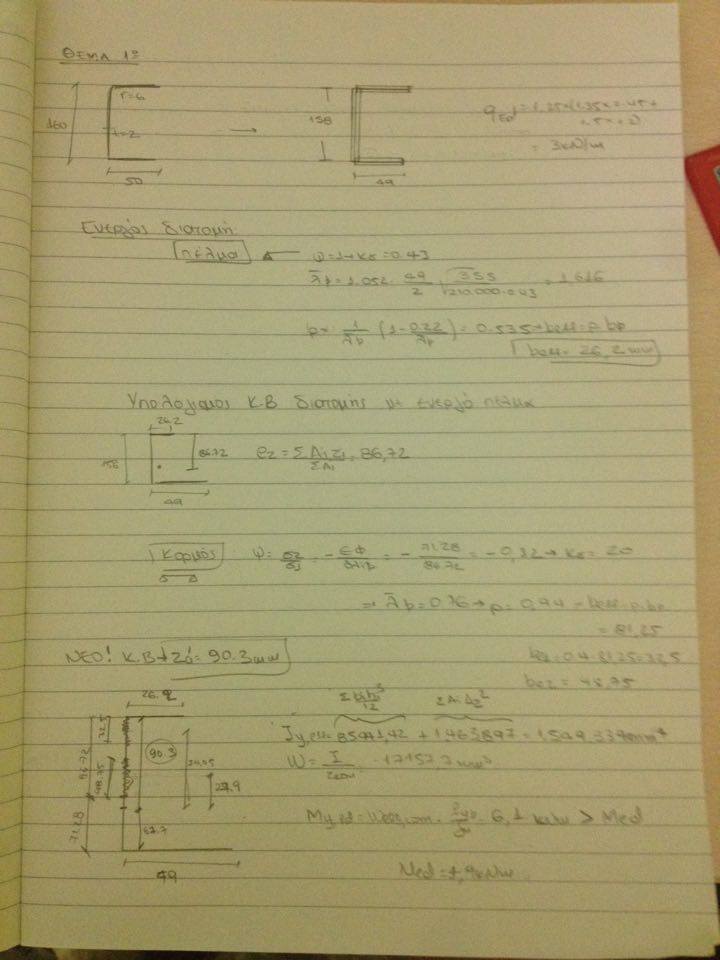 ΘΕΜΑ 1º
r=6
160
t=2
50
158
49
= 3kN/m
Ενεργός διατομή
πέλμα ← ψ=1→kσ=0.43
λ̄p = 1.052 · 49/2 · √355/210.000·0.43 = 1.616
ρ = 1/λ̄p (1-0.22/λ̄p) = 0.535 → beff = ρ·bp
beff = 26,2 mm
Υπολογισμός Κ.Β διατομής με ενεργό πέλμα
26.2
158
86.72
49
ez = ΣAizi/ΣAi = 86,72
Κορμός ψ = σ2/σ1 = - = - 71.28/86.72 = -0,82 → kσ = 20
⇒ λ̄p = 0.76 → ρ = 0,94 → beff = ρ·bp
= 81,25
be1 = 0.4·81.25 = 32,5
be2 = 48.75
ΝΕΟ! Κ.Β → = 90.3 mm
26.2
32.5
86.72
48.75
71.28
90.3
67.7
49
Σbh³/12 ΣAiΔz²
Jy,eff = + = mm⁴
W = I/ = 17157,7 mm³
My,Rd = Weff,com · fyb/γM = 6,1 kNm > Med
Med = 1,9 kNm